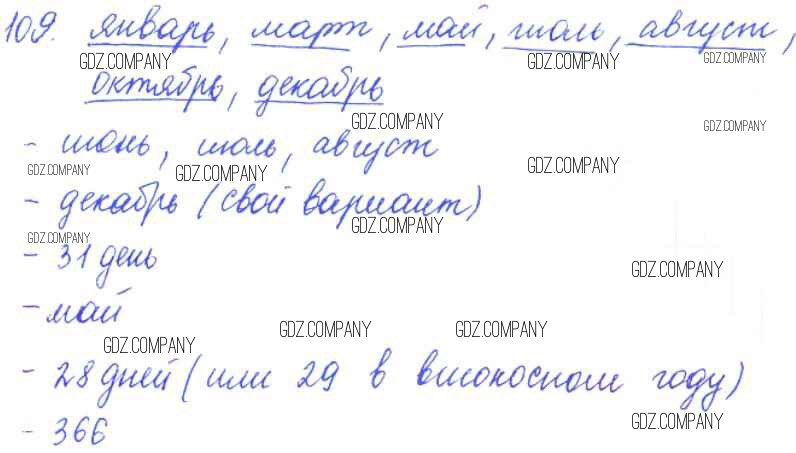 109. январь, март, май, июль, август,
GDZ.COMPANY GDZ.COMPANY GDZ.COMPANY
октябрь, декабрь
GDZ.COMPANY GDZ.COMPANY
- июнь, июль, август
GDZ.COMPANY GDZ.COMPANY GDZ.COMPANY
- декабрь (свой вариант)
GDZ.COMPANY GDZ.COMPANY
- 31 день
GDZ.COMPANY
- май
GDZ.COMPANY GDZ.COMPANY GDZ.COMPANY
- 28 дней (или 29 в високосном году)
GDZ.COMPANY
- 366